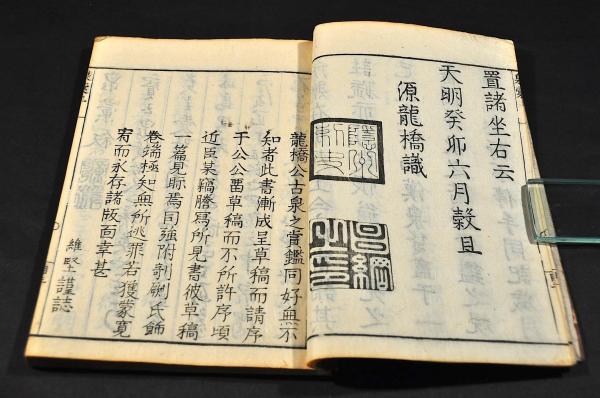 置諸坐右云
天明癸卯六月穀旦
源龍橋識
隱州刺史
昌綱之印
龍橋公古泉之賞鑑同好無不
知者此書漸成呈草稿而請序
于公公畱草稿而不所許序頃
近臣某竊謄寫所見書彼草稿
一篇見眎焉因強附剞劂氏飾
卷端極知無所逃罪若獲蒙寬
宥而永存諸版面幸甚
維堅謹誌